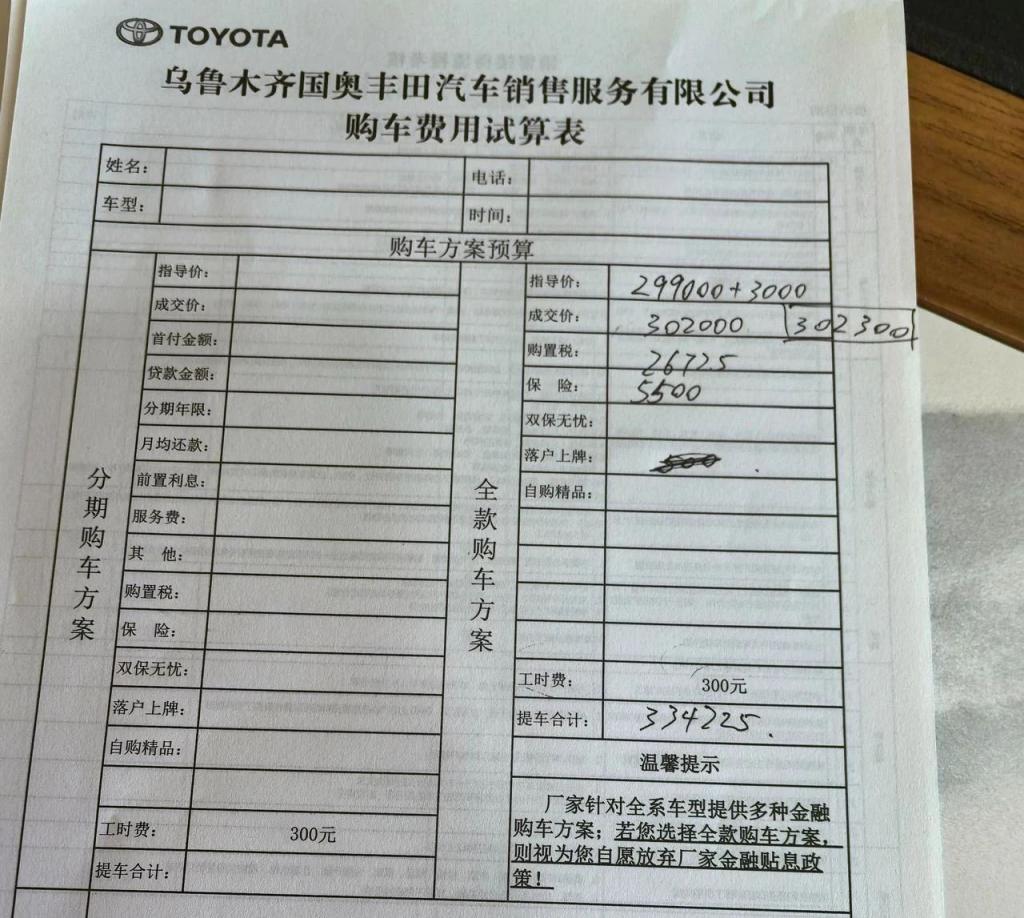 TOYOTA
乌鲁木齐国奥丰田汽车销售服务有限公司
购车费用试算表
姓名: 电话:
车型: 时间:
购车方案预算
分期购车方案
指导价:
成交价:
首付金额:
贷款金额:
分期年限:
月均还款:
前置利息:
服务费:
其 他:
购置税:
保 险:
双保无忧:
落户上牌:
自购精品:
工时费: 300元
提车合计:
全款购车方案
指导价: 299000+3000
成交价: 302000 302300
购置税: 26725
保 险: 5500
双保无忧:
落户上牌:
自购精品:
工时费: 300元
提车合计: 334225.
温馨提示
厂家针对全系车型提供多种金融
购车方案;若您选择全款购车方案,
则视为您自愿放弃厂家金融贴息政
策!